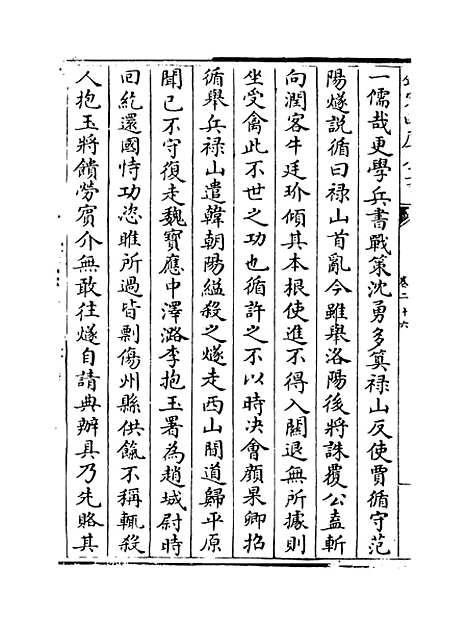 卷二十六
一儒哉更學兵書戰策沈勇多筭禄山反使賈循守范
陽燧説循曰禄山首亂今雖舉洛陽後將誅覆公盍斬
向潤客牛廷玠傾其本根使進不得入關退無所據則
坐受禽此不世之功也循許之不以時决會顔杲卿招
循舉兵禄山遣韓朝陽縊殺之燧走西山間道歸平原
聞已不守復走魏寳應中澤潞李抱玉署為趙城尉時
回紇還國恃功恣睢所過皆剽傷州縣供餼不稱輒殺
人抱玉將饋勞賓介無敢往燧自請典辦具乃先賂其